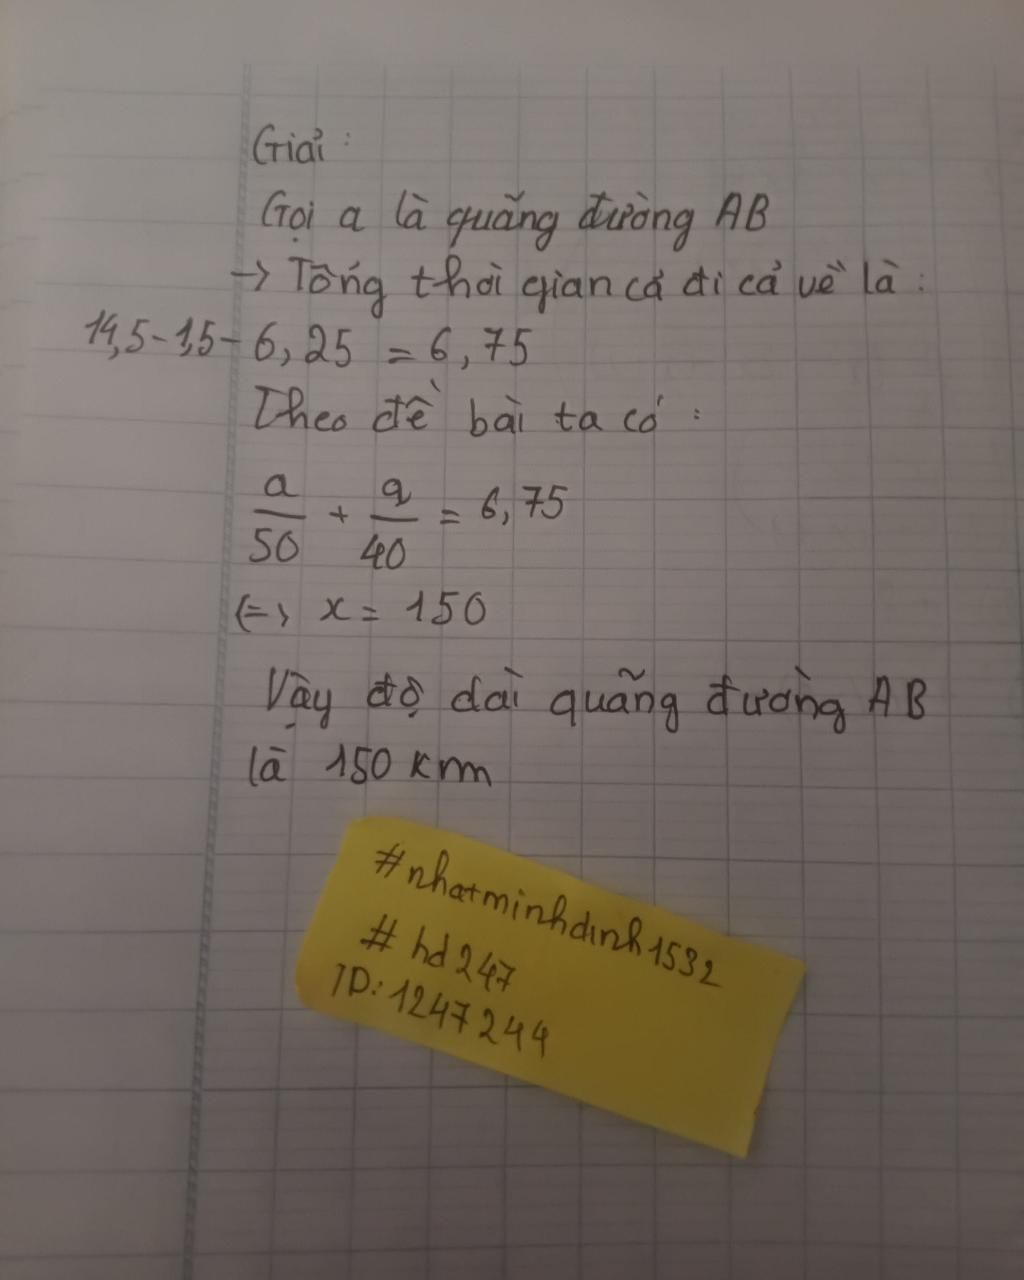 Giải:
Gọi a là quãng đường AB
→ Tổng thời gian cả đi cả về là:
14,5-1,5-6,25 = 6,75
Theo đề bài ta có:
a/50 + a/40 = 6,75
(=) x = 150
Vậy độ dài quãng đường AB
là 150 km
#nhatminhdinh1532
# hd247
ID: 1247244